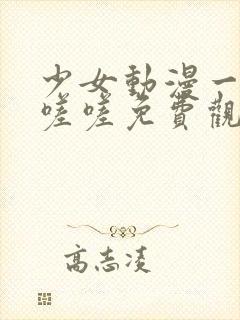 少女動漫一
嗟嗟免費觀
高志凌